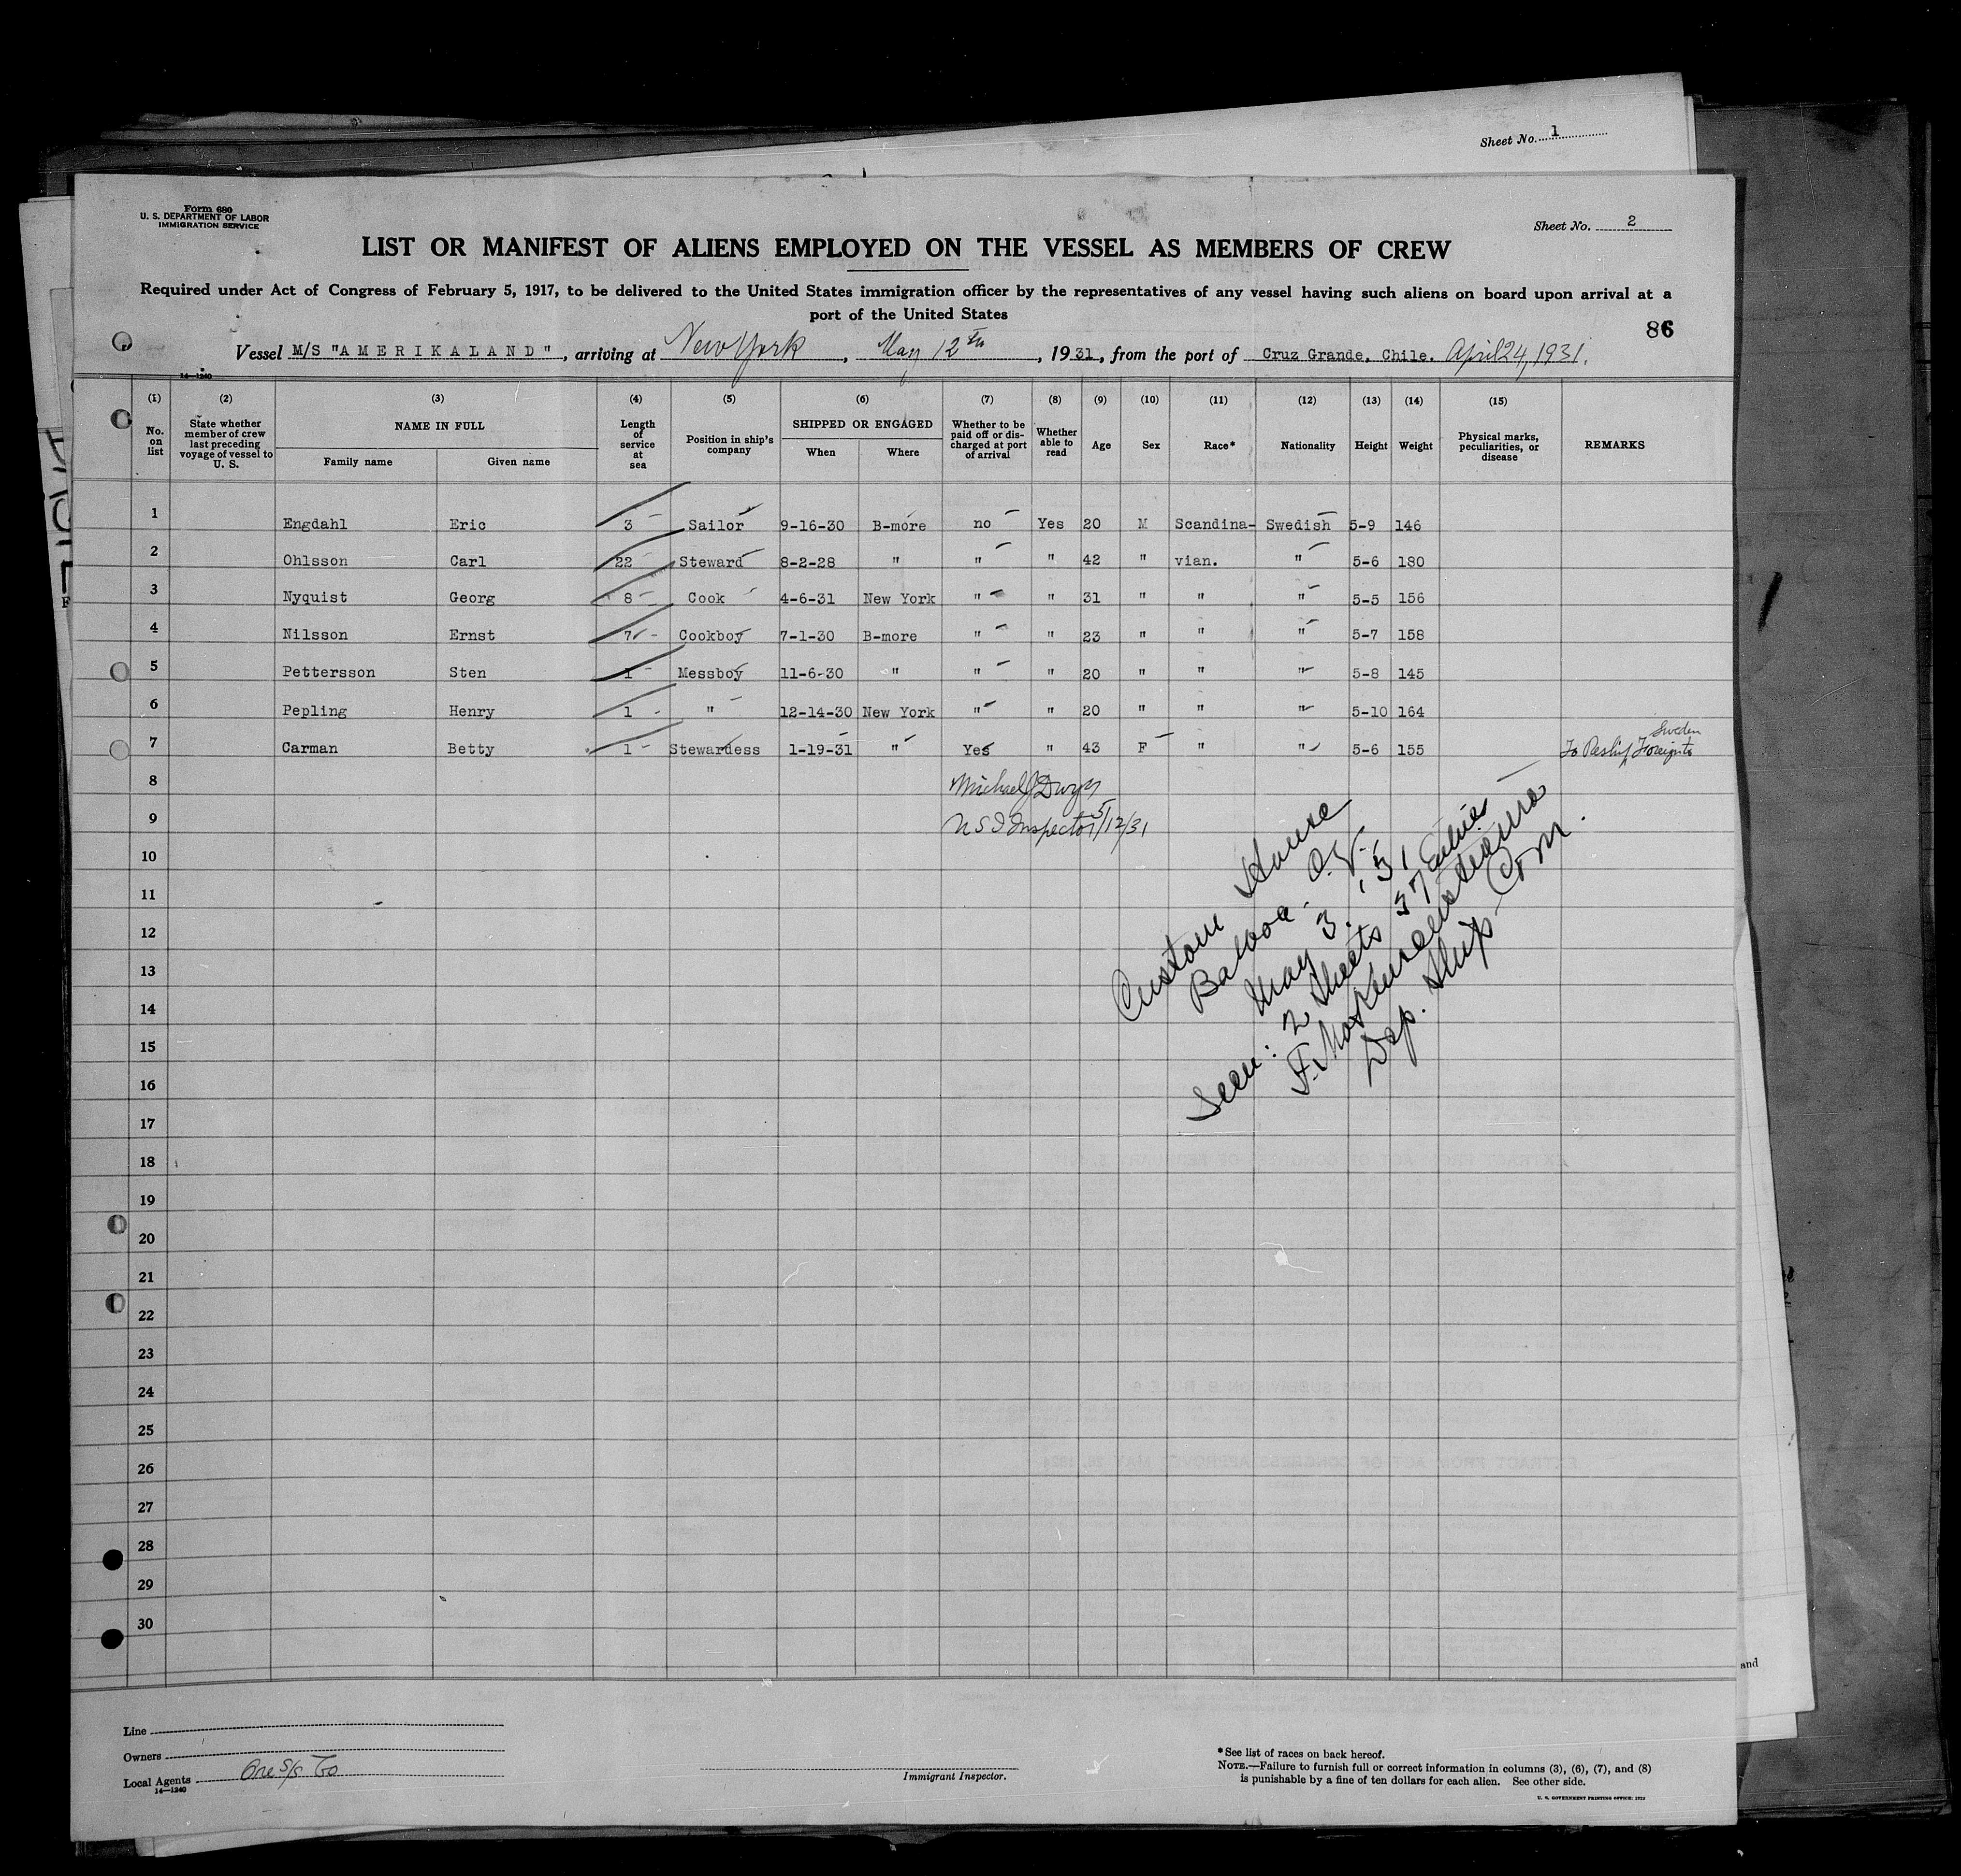 Sheet No. 1
Form 680
U. S. DEPARTMENT OF LABOR
IMMIGRATION SERVICE
Sheet No. 2
LIST OR MANIFEST OF ALIENS EMPLOYED ON THE VESSEL AS MEMBERS OF CREW
Required under Act of Congress of February 5, 1917, to be delivered to the United States immigration officer by the representatives of any vessel having such aliens on board upon arrival at a
port of the United States
86
Vessel M/S "AMERIKALAND", arriving at New York, May 12th, 1931, from the port of Cruz Grande, Chile. April 24, 1931.
14—1240
(1) (2) (3) (4) (5) (6) (7) (8) (9) (10) (11) (12) (13) (14) (15)
No. on list | State whether member of crew last preceding voyage of vessel to U. S. | NAME IN FULL | Family name | Given name | Length of service at sea | Position in ship's company | SHIPPED OR ENGAGED | When | Where | Whether to be paid off or discharged at port of arrival | Whether able to read | Age | Sex | Race* | Nationality | Height | Weight | Physical marks, peculiarities, or disease | REMARKS
1 Engdahl Eric 3 Sailor 9-16-30 B-more no Yes 20 M Scandina- Swedish 5-9 146
2 Ohlsson Carl 22 Steward 8-2-28 " " " 42 " vian. " 5-6 180
3 Nyquist Georg 8 Cook 4-6-31 New York " " 31 " " " 5-5 156
4 Nilsson Ernst 7 Cookboy 7-1-30 B-more " " 23 " " " 5-7 158
5 Pettersson Sten 1 Messboy 11-6-30 " " " 20 " " " 5-8 145
6 Pepling Henry 1 " 12-14-30 New York " " 20 " " " 5-10 164
7 Carman Betty 1 Stewardess 1-19-31 " Yes " 43 F " " 5-6 155 To Reship Foreign to Sweden
8
Michael J Dwyer
9
U S I Inspector 5/12/31
10
11
12
13
14
15
16
17
18
19
20
21
22
23
24
25
26
27
28
29
30
Custom House
Balboa. C.Z.
May 3. '31
Seen: 2 Sheets 37
Dep. Ship Com.
Line
Owners
Local Agents Ore S/S Co
14—1240
Immigrant Inspector.
*See list of races on back hereof.
NOTE.—Failure to furnish full or correct information in columns (3), (6), (7), and (8)
is punishable by a fine of ten dollars for each alien. See other side.
and